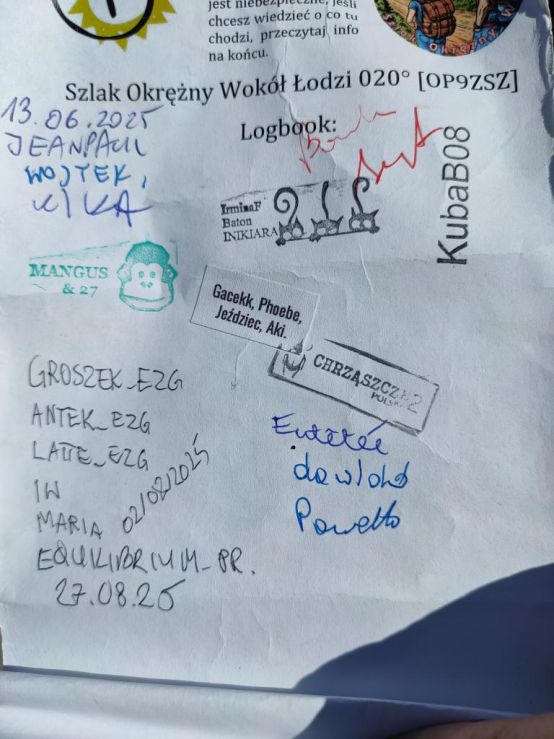 jest niebezpieczne, jeśli
chcesz wiedzieć o co tu
chodzi, przeczytaj info
na końcu.
Szlak Okrężny Wokół Łodzi 020° [OP9ZSZ]
Logbook:
13.06.2025
JEANPAUL
WOJTEK,
KIKA
KubaB08
IrminaF
Baton
INIKIARA
MANGUS
& 27
Gacekk, Phoebe,
Jeździec, Aki.
CHRZĄSZCZE2
POLSKA
GROSZEK_EZG
ANTEK_EZG
LATTE_EZG
IW
MARIA 02/08/2025
EQUILIBRIUM_PR.
27.08.25
Pawełło